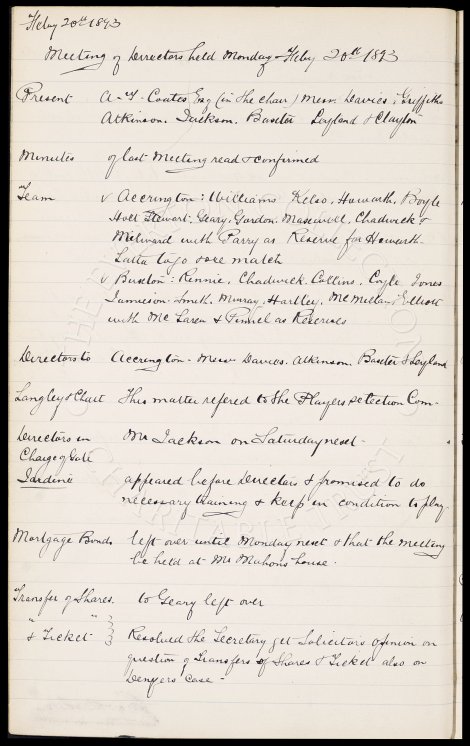 Feby 20th 1893
Meeting of Directors held Monday Feby 20th 1893
Present A. T. Coates Esq (in the chair) Messrs Davies, Griffiths
Atkinson. Jackson. Baxter Leyland & Clayton
Minutes of last Meeting read & confirmed
Team v Accrington: Williams Kelso, Howarth, Boyle
Holt Stewart. Geary. Gordon. Maxwell. Chadwick &
Milward with Parry as Reserve for Howarth
Latta to go & see match
v Buxton: Rennie, Chadwick. Collins, Coyle Jones
Jamieson. Smith, Murray, Hartley, McMillan, Elliott
with McLaren & Pinnel as Reserves
Directors to Accrington - Messrs Davies. Atkinson, Baxter & Leyland
Langley & Chart This matter refered to the Players selection Com-
Directors in Mr Jackson on Saturday next -
Charge of Gate
Jardine appeared before Directors & promised to do
necessary training & keep in condition to play.
Mortgage Bonds left over until Monday next & that the meeting
be held at Mr Mahons house.
Transfer of Shares. to Geary left over
" " }
& Ticket } Resolved the Secretary get Solicitors opinion on
question of Transfers of Shares & Ticket also on
case -